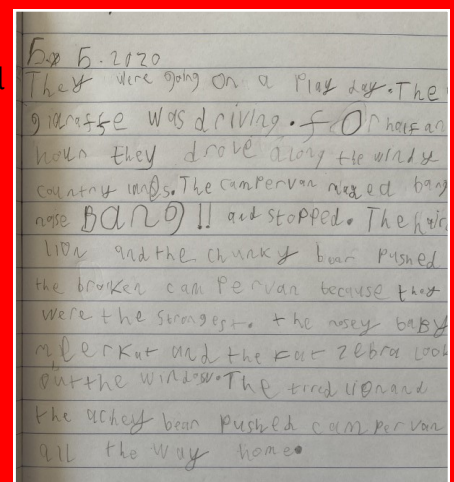 5.5.2020
They were going on a Play day. The
giaraffe was driving. fOr half an
houn they drove along the windy
country innes. The campervan maged bang
nose BanG !! and stopped. The hair
lion and the chunky bear Pushed
the broken camPervan because they
were the strongest. the nosey baby
meerkat and the Fat Zebra look
out the window. The tired lion and
the achey bean Pushed camPervan
all the way home.